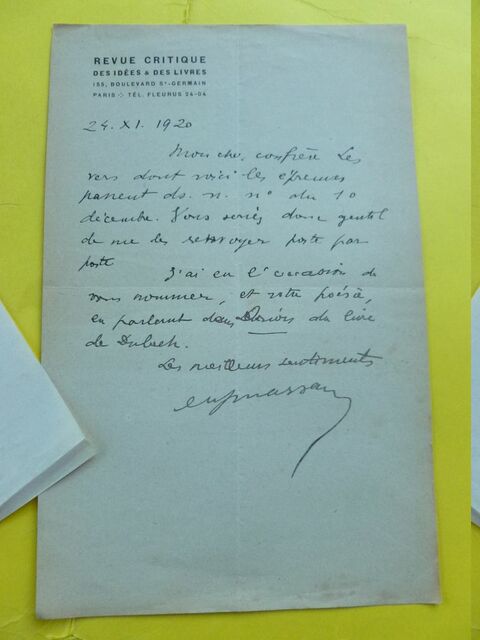 REVUE CRITIQUE
DES IDÉES & DES LIVRES
155, BOULEVARD Sᵗ-GERMAIN
PARIS TÉL. FLEURUS 24-04
24. XI. 1920
Mon cher confrère Les
vers dont voici les épreuves
passent ds. n. n° du 10
décembre. Vous seriez donc gentil
de me les renvoyer poste par
poste
J'ai eu l'occasion de
vous nommer, et votre poésie,
en parlant dans du livre
de Dubech.
Les meilleurs sentiments